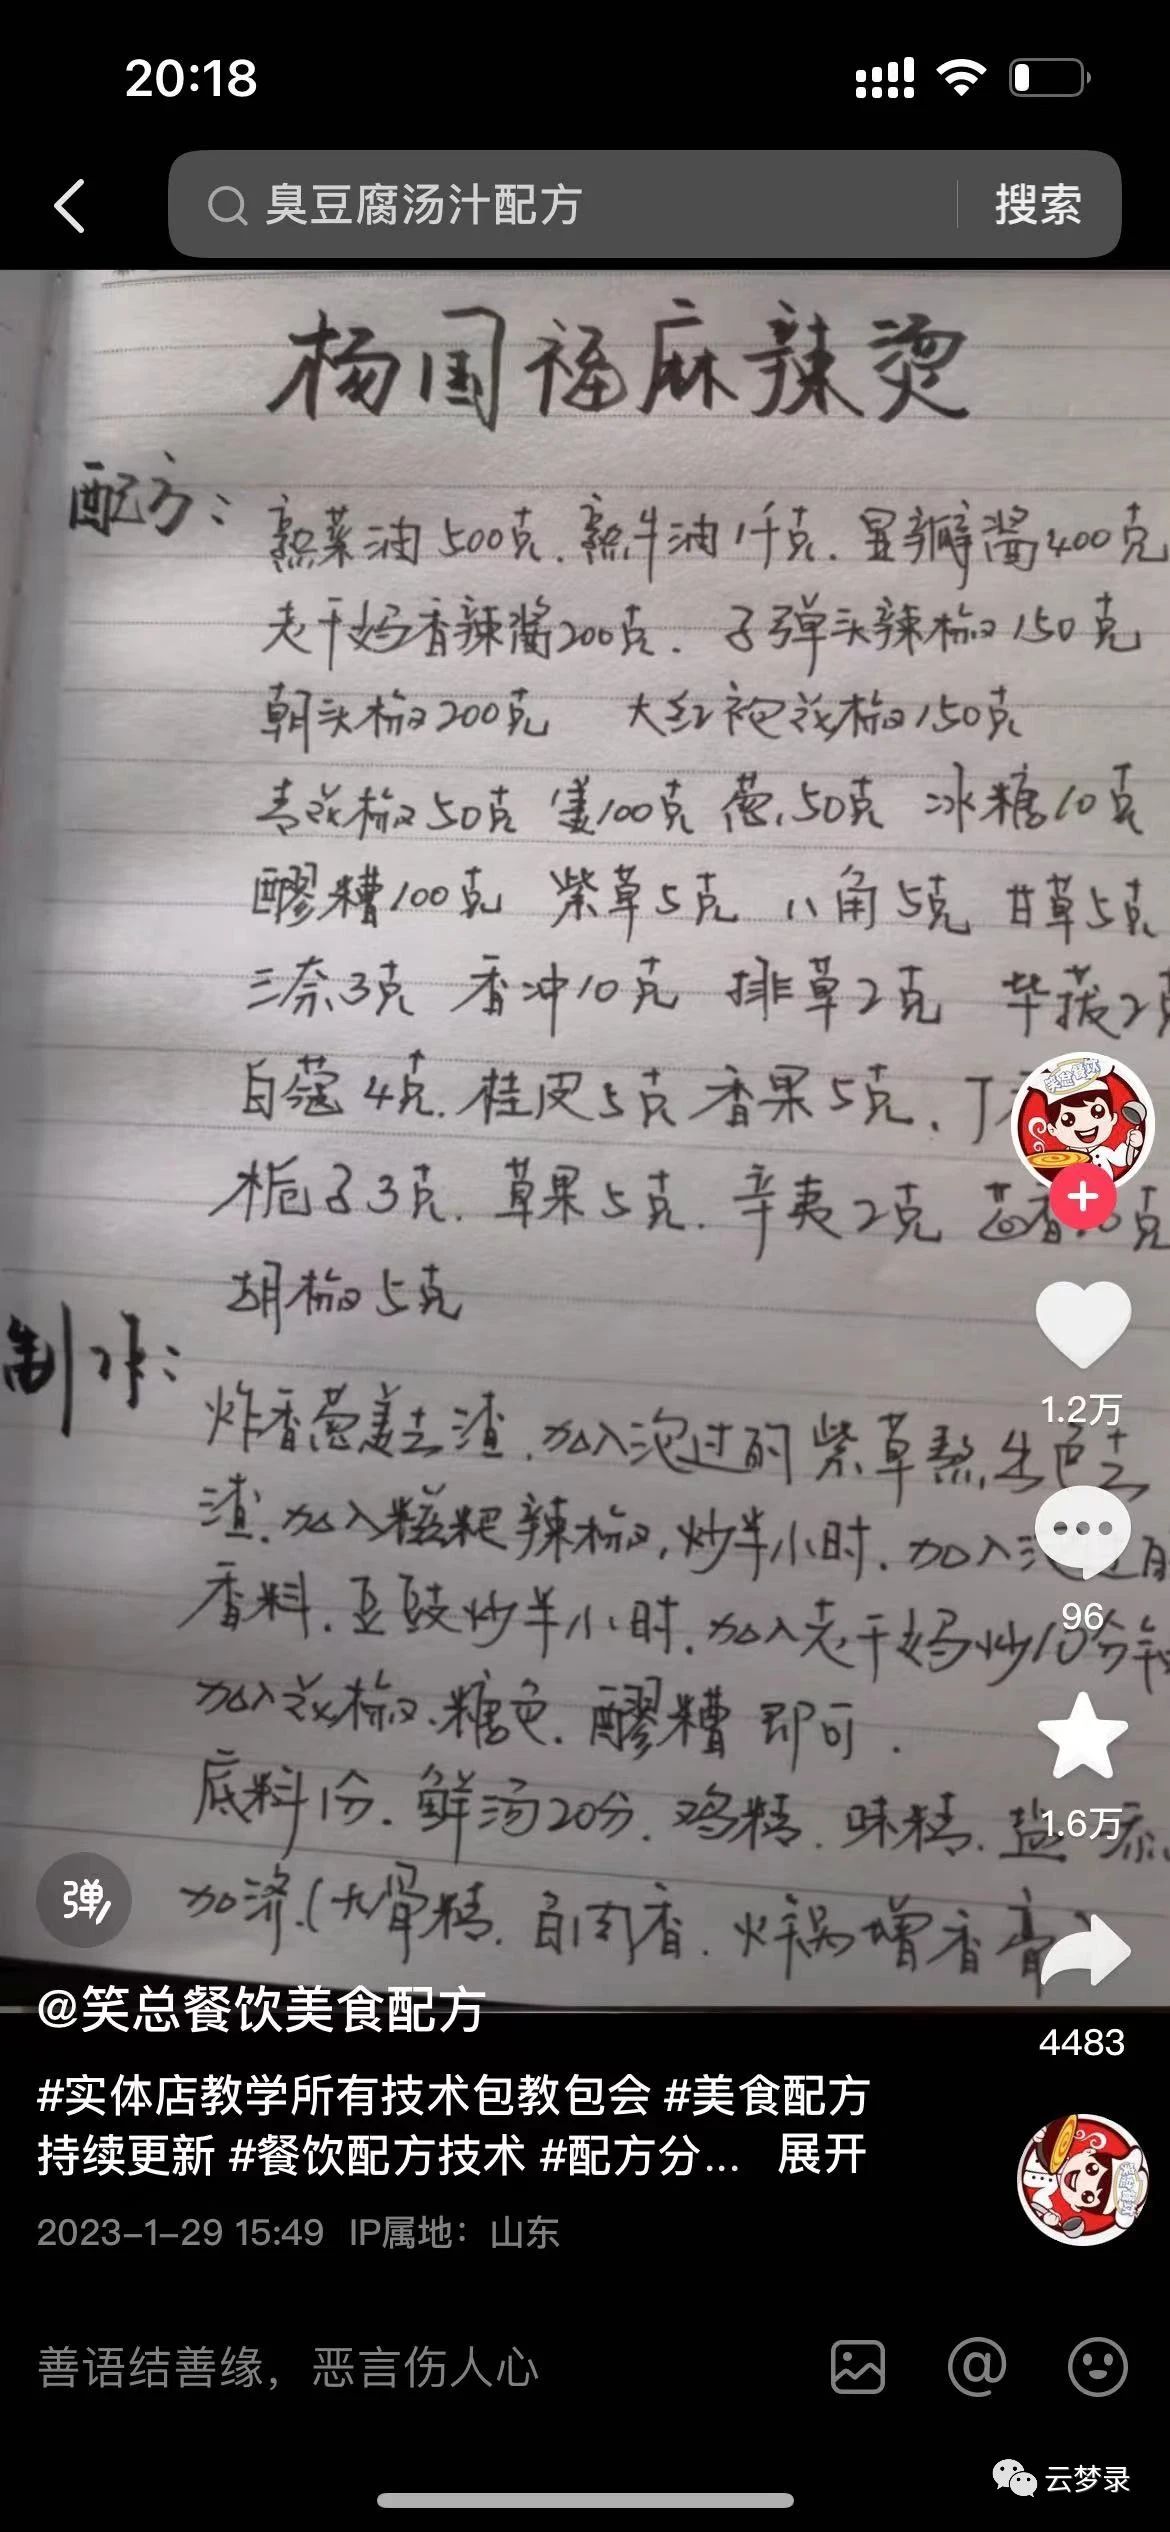 20:18
臭豆腐汤汁配方 搜索
杨国福麻辣烫
配方：熟菜油500克.熟牛油1千克.豆瓣酱400克
老干妈香辣酱200克.子弹头辣椒150克
朝头椒200克 大红袍花椒150克
青花椒50克 姜100克 葱150克 冰糖10克
醪糟100克 紫草5克 八角5克 甘草5克
三奈3克 香冲10克 排草2克 毕拔2克
白蔻4克.桂皮5克 香果5克.丁
栀子3克.草果5克.辛夷2克
胡椒5克
制作：
炸香葱姜去渣.加入泡过的紫草熬出色去
渣.加入糍粑辣椒,炒半小时.加入泡过的
香料.豆豉炒半小时.加入老干妈炒10分钟
加入花椒.糖色.醪糟即可.
底料1分.鲜汤20分.鸡精.味精.盐.添
加济.(大骨精.自肉香.火锅增香膏)
1.2万
96
1.6万
4483
弹
@笑总餐饮美食配方
#实体店教学所有技术包教包会 #美食配方
持续更新 #餐饮配方技术 #配方分... 展开
2023-1-29 15:49 IP属地：山东
善语结善缘，恶言伤人心
云梦录